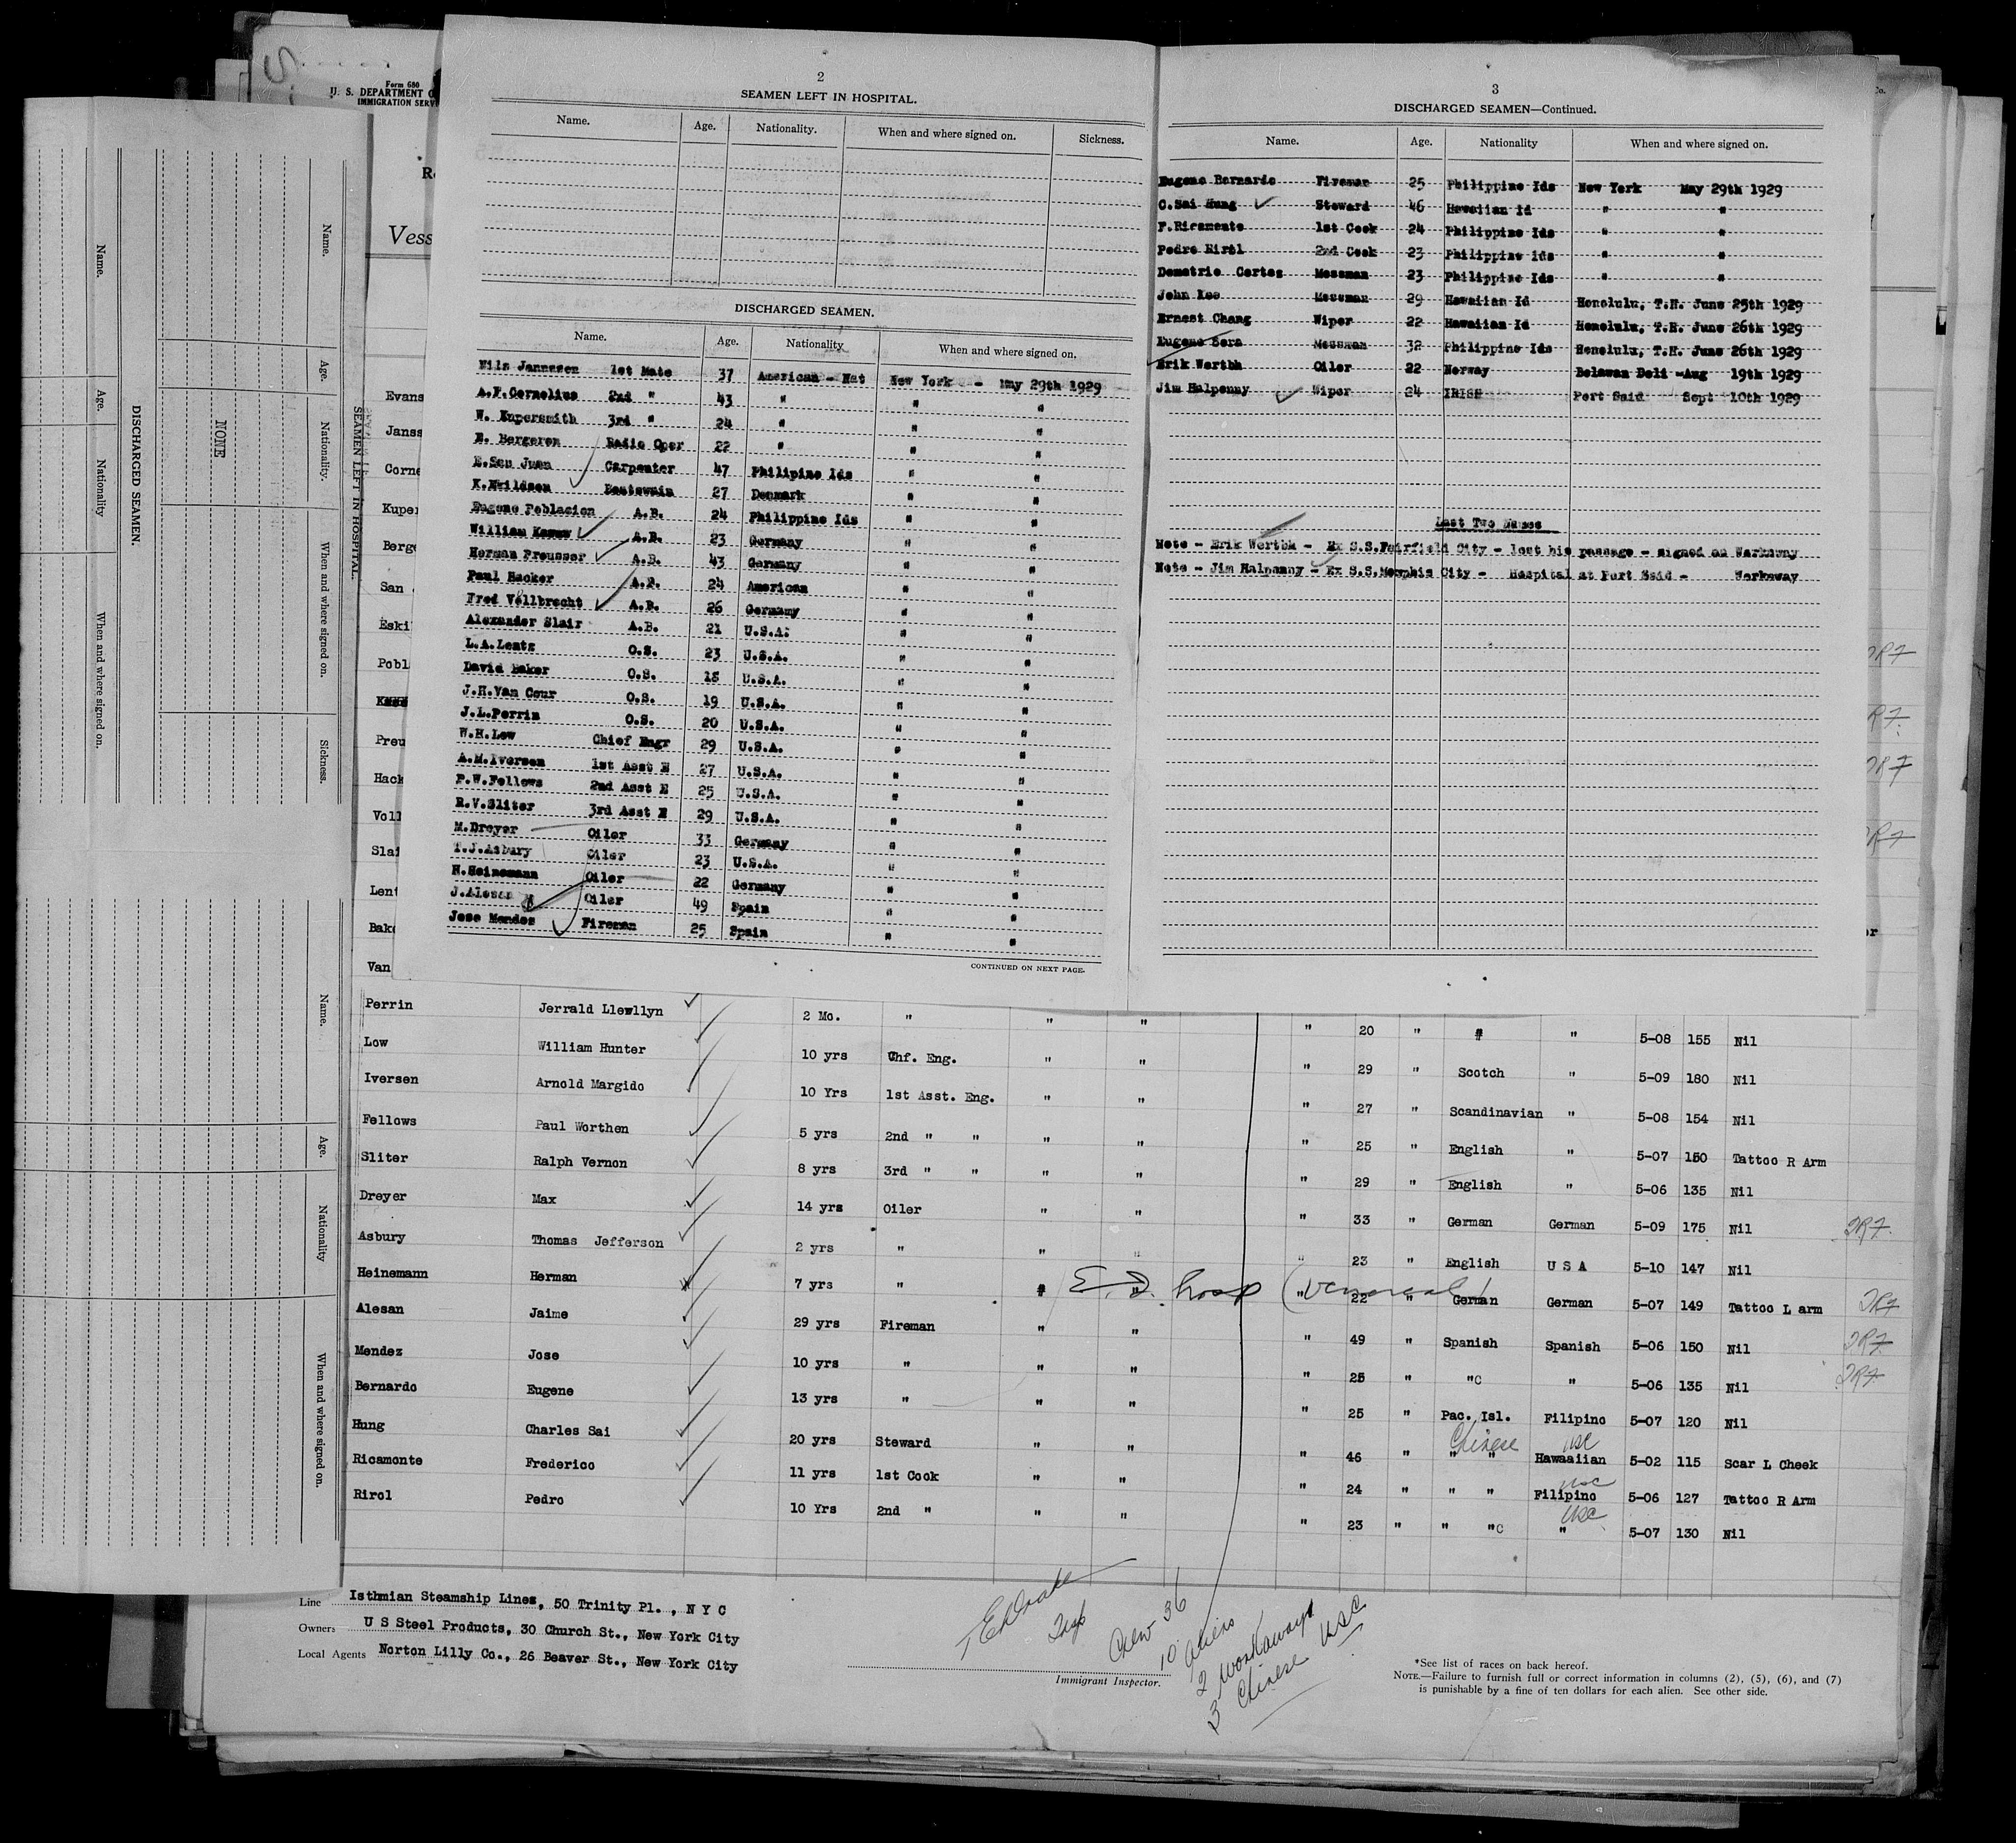 Form 680
U. S. DEPARTMENT
IMMIGRATION SERV
Vess
Evans
Janss
Corne
Kuper
Berge
San
Eski
Pobl
Preu
Hack
Voll
Slai
Lent
Bake
Van
2
SEAMEN LEFT IN HOSPITAL.
Name. Age. Nationality. When and where signed on. Sickness.
DISCHARGED SEAMEN.
Name. Age. Nationality When and where signed on.
Nils Jannssen 1st Mate 37 American - Nat New York - May 29th 1929
A.F.Cornelius 2nd " 43 " " "
W. Kupersmith 3rd " 24 " " "
E. Bergeron Radio Oper 22 " " "
E.San Juan Carpenter 47 Philipine Ids " "
K.Eskildsen Boatswain 27 Denmark " "
Eugene Poblacion A.B. 24 Philippine Ids " "
William A.B. 23 Germany " "
Herman Preusser A.B. 43 Germany " "
Paul Hacker A.B. 24 American " "
Fred Vollbrecht A.B. 26 Germany " "
Alexander Slair A.B. 21 U.S.A. " "
L.A.Lentz O.S. 23 U.S.A. " "
David Baker O.S. 18 U.S.A. " "
J.H.Van Cour O.S. 19 U.S.A. " "
J.L.Perrin O.S. 20 U.S.A. " "
W.H.Low Chief Engr 29 U.S.A. " "
A.M.Iversen 1st Asst E 27 U.S.A. " "
P.W.Fellows 2nd Asst E 25 U.S.A. " "
R.V.Sliter 3rd Asst E 29 U.S.A. " "
M.Dreyer Oiler 33 Germany " "
T.J.Asbury Oiler 23 U.S.A. " "
H.Heinemann Oiler 22 Germany " "
J.Alesan Oiler 49 Spain " "
Jose Mendez Fireman 25 Spain " "
CONTINUED ON NEXT PAGE.
3
DISCHARGED SEAMEN—Continued.
Name. Age. Nationality When and where signed on.
Eugene Bernardo Fireman 25 Philippine Ids New York May 29th 1929
C.Sai Hung Steward 46 Hawaiian Id " "
F.Ricamonte 1st Cook 24 Philippine Ids " "
Pedro Rirol 2nd Cook 23 Philippine Ids " "
Demetrio Cortes Messman 23 Philippine Ids " "
John Kee Messman 29 Hawaiian Id Honolulu, T.H. June 25th 1929
Ernest Chang Wiper 22 Hawaiian Id Honolulu, T.H. June 26th 1929
Eugene Sera Messman 32 Philippine Ids Honolulu, T.H. June 26th 1929
Erik Wertbh Oiler 22 Norway Belawan Deli -Aug 19th 1929
Jim Halpenny Wiper 24 IRISH Port Said Sept 10th 1929
Last Two Names
Note - Erik Wertbh - Ex S.S.Fairfield City - lost his passage - signed on Workaway
Note - Jim Halpenny - Ex S.S.Memphis City - Hospital at Port Said - Workaway
Name. Age. Nationality. When and where signed on. Sickness.
SEAMEN LEFT IN HOSPITAL.
NONE
DISCHARGED SEAMEN.
Name. Age. Nationality When and where signed on.
Name. Age. Nationality When and where signed on.
Perrin Jerrald Llewllyn 2 Mo. " " " " 20 " " " 5-08 155 Nil
Low William Hunter 10 yrs Chf. Eng. " " " 29 " Scotch " 5-09 180 Nil
Iversen Arnold Margido 10 Yrs 1st Asst. Eng. " " " 27 " Scandinavian " 5-08 154 Nil
Fellows Paul Worthen 5 yrs 2nd " " " " " 25 " English " 5-07 150 Tattoo R Arm
Sliter Ralph Vernon 8 yrs 3rd " " " " " 29 " English " 5-06 135 Nil
Dreyer Max 14 yrs Oiler " " " 33 " German German 5-09 175 Nil
Asbury Thomas Jefferson 2 yrs " " " " 23 " English U S A 5-10 147 Nil
Heinemann Herman 7 yrs " " " " 22 " German German 5-07 149 Tattoo L arm
E. I. hosp (venereal)
Alesan Jaime 29 yrs Fireman " " " 49 " Spanish Spanish 5-06 150 Nil
Mendez Jose 10 yrs " " " " 25 " " " 5-06 135 Nil
Bernardo Eugene 13 yrs " " " " 25 " Pac. Isl. Filipino 5-07 120 Nil
Chinese USC
Hung Charles Sai 20 yrs Steward " " " 46 " " " Hawaiian 5-02 115 Scar L Cheek
USC
Ricamonte Frederico 11 yrs 1st Cook " " " 24 " " " Filipino 5-06 127 Tattoo R Arm
USC
Rirol Pedro 10 Yrs 2nd " " " " 23 " " " " 5-07 130 Nil
Line Isthmian Steamship Lines, 50 Trinity Pl., N Y C
Owners U S Steel Products, 30 Church St., New York City
Local Agents Norton Lilly Co., 26 Beaver St., New York City
Crew 36
10 Aliens
2 workaways
3 Chinese USC
Immigrant Inspector.
*See list of races on back hereof.
NOTE.—Failure to furnish full or correct information in columns (2), (5), (6), and (7)
is punishable by a fine of ten dollars for each alien. See other side.